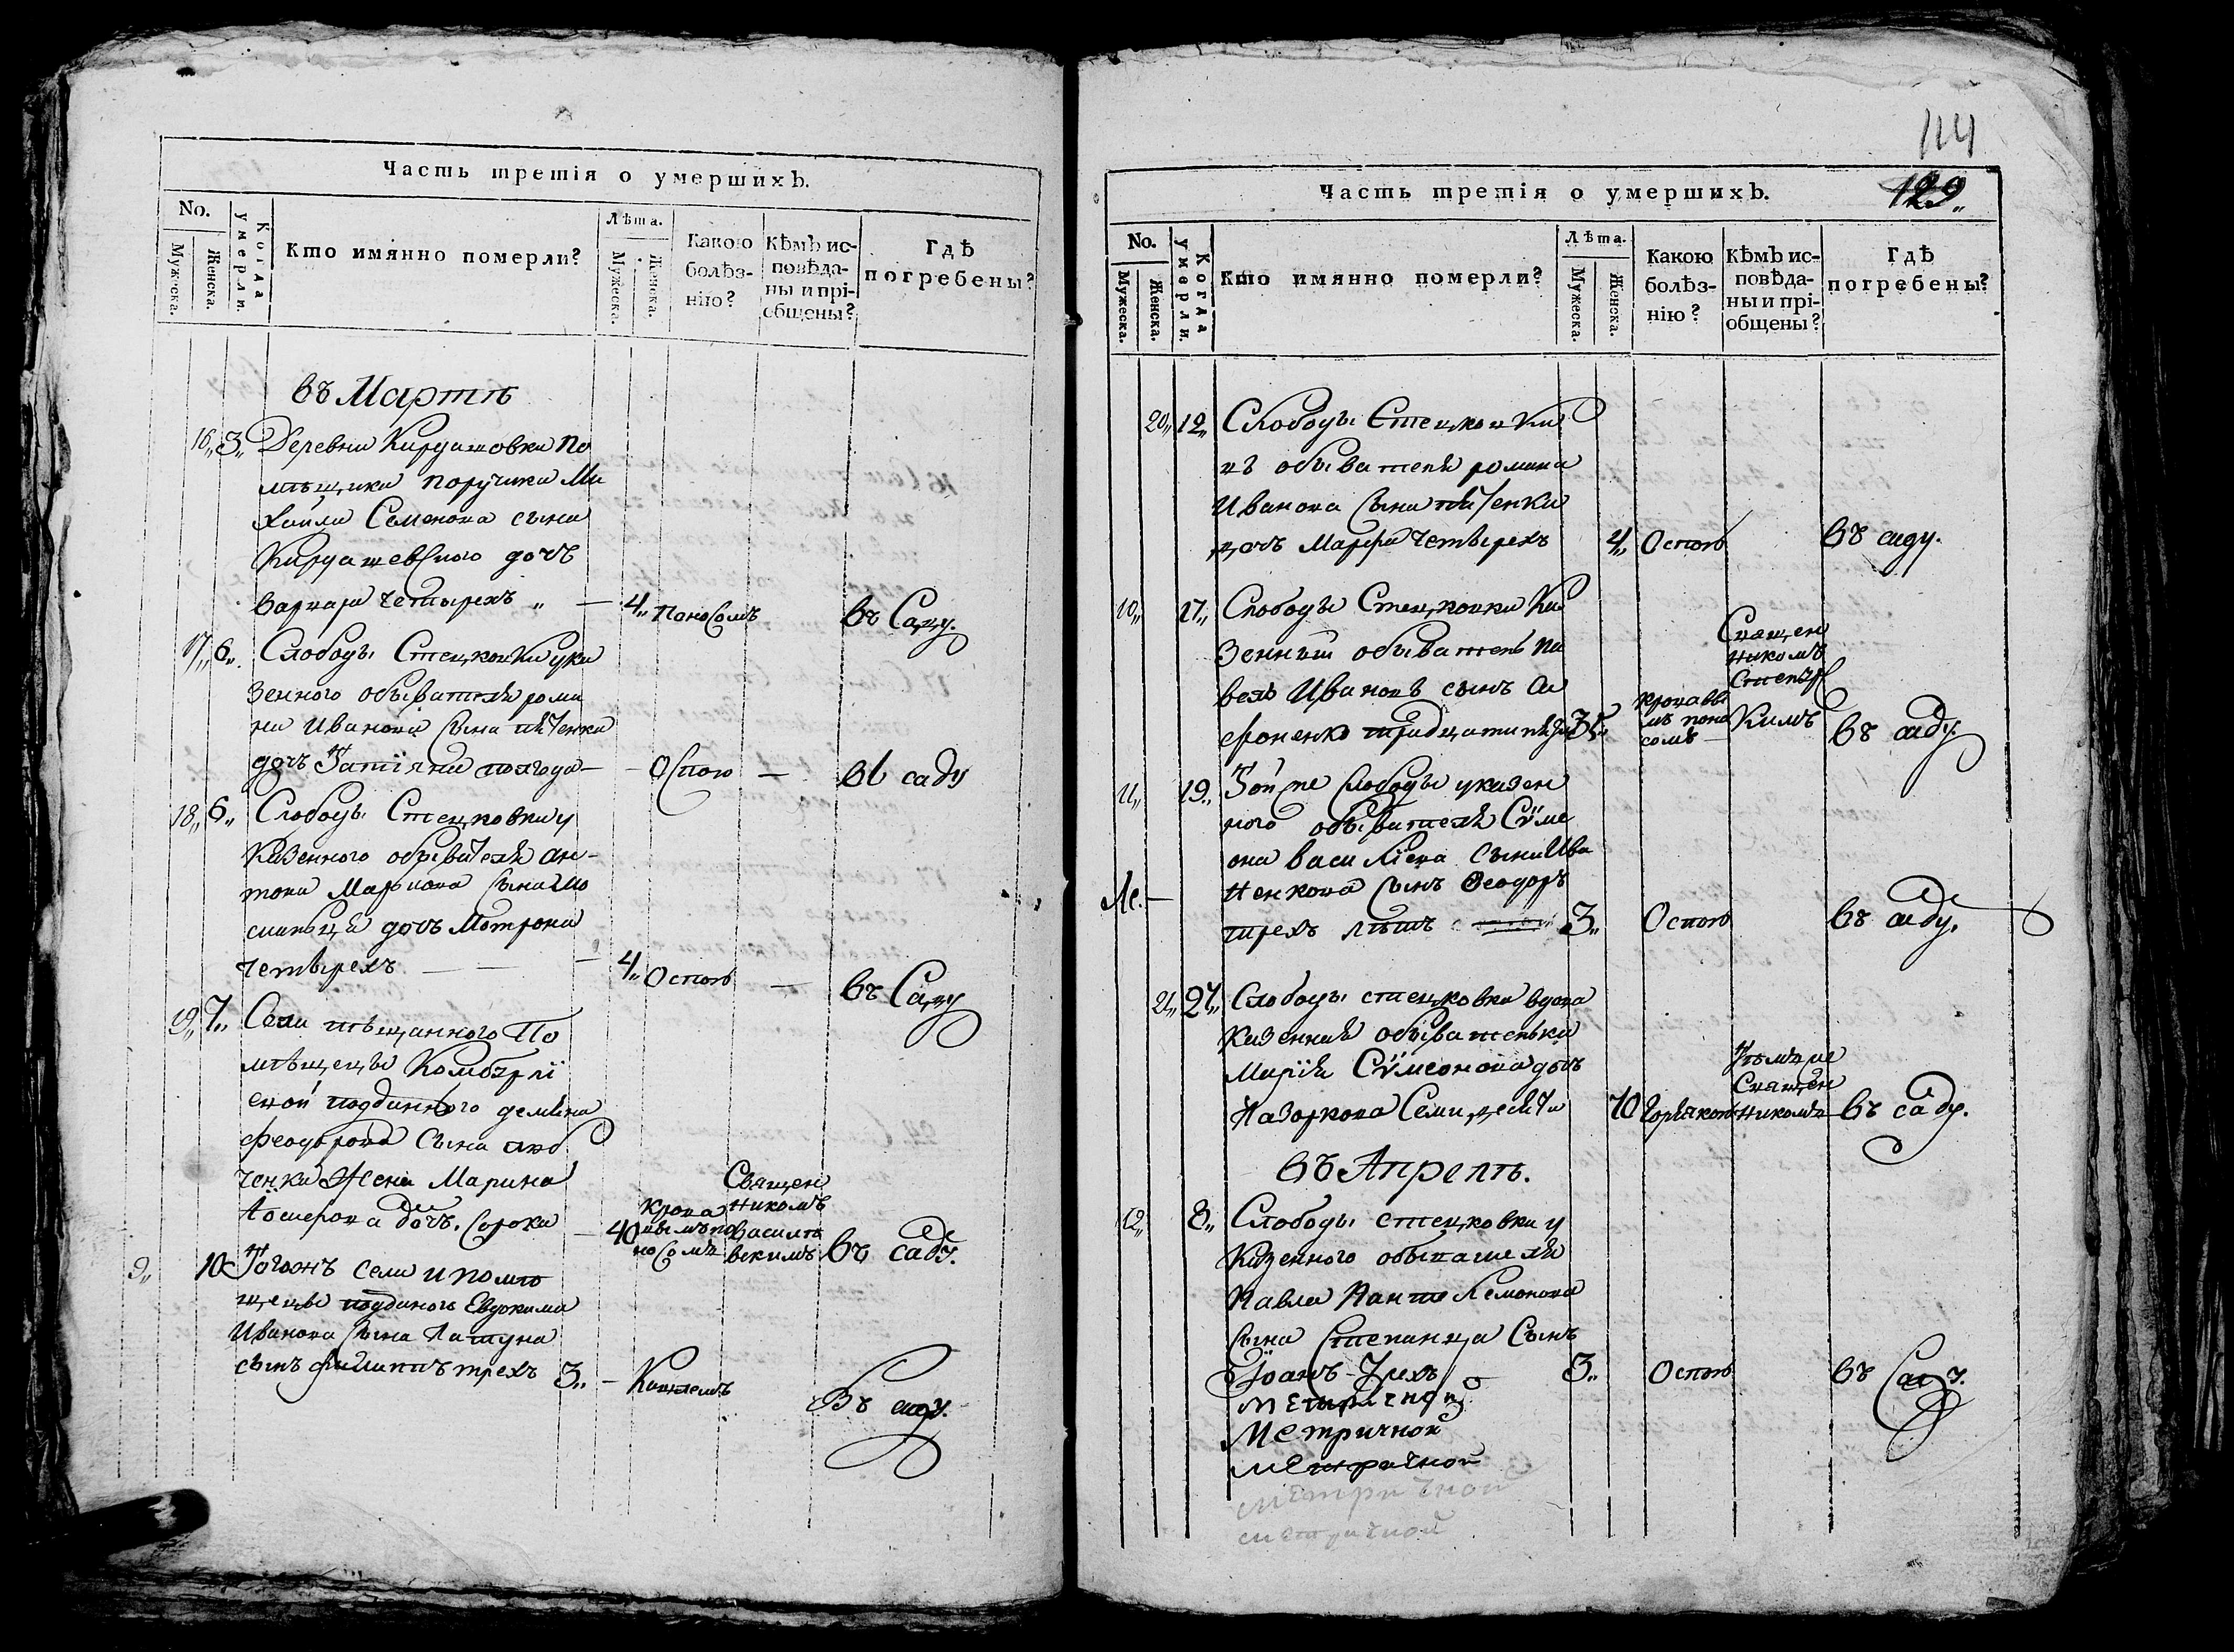 Часть третія о умершихъ.
No.
Мужеска.
Женска.
Когда умерли.
Кто имянно померли?
Лѣта.
Мужеска.
Женска.
Какою болѣз-
нію?
Кѣмъ ис-
повѣда-
ны и прі-
общены?
Гдѣ
погребены?
въ Мартѣ
16,, 3,, Деревни Кардашовки по
мѣщика порутчика Ми
хайла Семенова сына
Кардашевского дочь
Варвара четырехъ ,, — 4,, поносомъ въ Саду.
17,, 6,, Слободы Стецковки ука
зенного обывателя рома
на Иванова сына
дочь Татіяна полгода — Оспою — въ саду
18,, 6,, Слободы Стецковки у
казенного обывателя ан-
тона Маркова сына
дочь Мотрона
четырехъ — 4,, Оспою — въ Саду
19,, 7,, Села по
мѣщецы
ской подданного демяна
феодорова сына
ченка жена Марина
дочь. сорока — 40 крова
вымъ по
носомъ Священ
никомъ
василе
вскимъ въ саду.
9,, 10 Тогожъ села и помѣ
щецы подданого Евдокима
Иванова сына Латуна
сынъ филиппъ трехъ 3,, — Кашлемъ Въ саду.
114
129,,
Часть третія о умершихъ.
No.
Мужеска.
Женска.
Когда умерли.
Кто имянно померли?
Лѣта.
Мужеска.
Женска.
Какою
болѣз-
нію?
Кѣмъ ис-
повѣда-
ны и прі-
общены?
Гдѣ
погребены?
20,, 12,, Слободы Стецковки
обывателя романа
Иванова сына
дочь Марфа четырехъ 4,, Оспою въ саду.
10,, 17,, Слободы Стецковки ка
зенный обыватель па
велъ Ивановъ сынъ
фоненко тридцати пяти 35,, кровавы
мъ поно
сомъ Священ
никомъ
въ саду.
11,, 19,, Той же слободы указен
ного обывателя Сѵме
она василіева сына Ива
ненкова сынъ Феодоръ
трехъ лѣтъ 3,, Оспою въ саду.
21,, 27,, Слободы стецковки вдова
казенная обывателька
Марія Сѵмеонова дочь
Назоркова Семидесяти 70 Горячкою Тѣмъ же
Священ
никомъ въ саду.
въ Апрелѣ.
12,, 8,, Слободы стецковки у
казенного обывателя
Павла Пантелемонова
сына Степанца Сынъ
Іоанъ трехъ 3,, Оспою въ Саду.
Метричной
Метричной
метричной
метричной
метричной